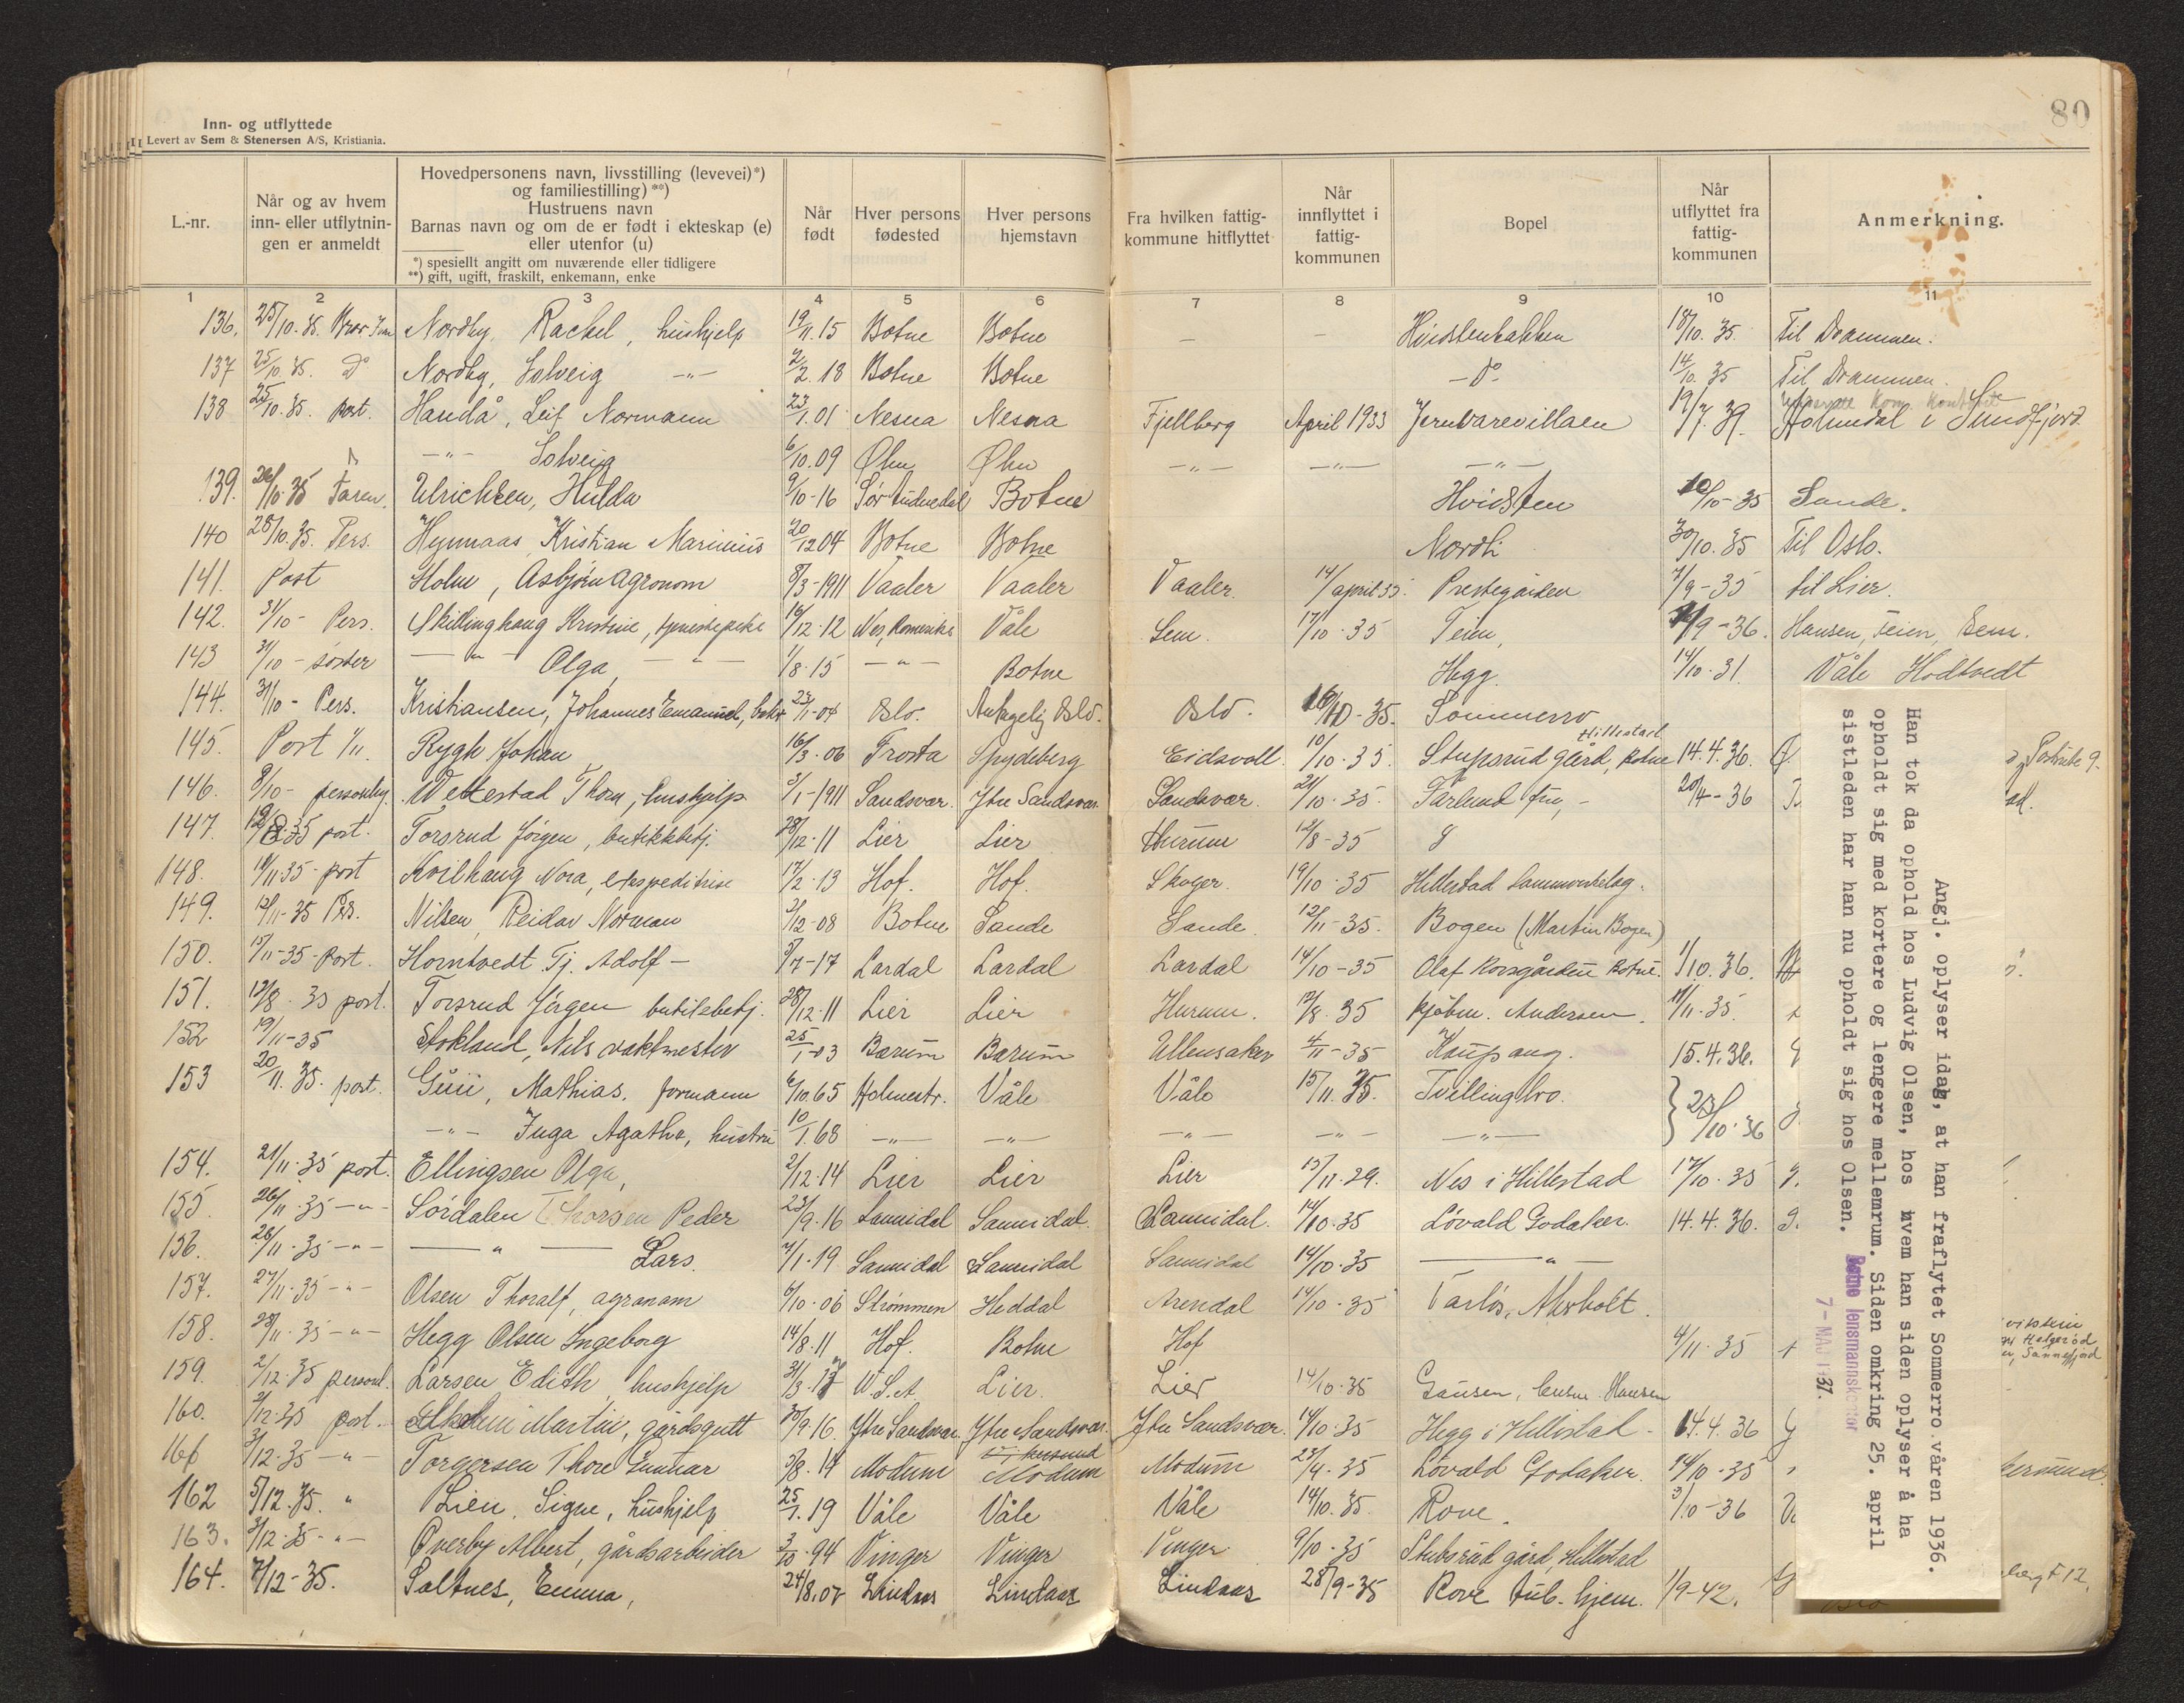 80
Inn- og utflyttede
II Levert av Sem & Stenersen A/S, Kristiania.
L.-nr.
Når og av hvem inn- eller utflytningen er anmeldt
Hovedpersonens navn, livsstilling (levevei)*) og familiestilling) **)
Hustruens navn
Barnas navn og om de er født i ekteskap (e) eller utenfor (u)
*) spesiellt angitt om nuværende eller tidligere
**) gift, ugift, fraskilt, enkemann, enke
Når født
Hver persons fødested
Hver persons hjemstavn
Fra hvilken fattigkommune hitflyttet
Når innflyttet i fattigkommunen
Bopel
Når utflyttet fra fattigkommunen
Anmerkning.
1 2 3 4 5 6 7 8 9 10 11
136. 25/10. 35. Nordby, Rachel, hushjelp 19/11.15 Botne Botne — — Hvidstenbakken 18/10. 35. Til Drammen.
137 25/10. 35. do Nordby, Solveig —"— 2/2. 18 Botne Botne —do— 14/10. 35 Til Drammen.
138 25/10. 35. Post. Handå, Leif Normann 23/1.01 Nesna Nesna Fjellberg April 1933 Jernvarevillaen 19/7. 39. Holmedal i Sundfjord
—"— Solveig 6/10.09 Ølen Ølen —"— —"— —"—
139. 26/10 35 Faren. Ulrichsen, Hulda 9/10-16 Sør Audnedal Botne Hvidsten 10/10-35 Sande.
140 28/10. 35. Pers. Hynnaas Kristian Marinius 20/12 04 Botne Botne Nordli 30/10. 35 Til Oslo.
141. Post Holm, Asbjørn agronom 8/3-1911 Vaaler Vaaler Vaaler. 14/april 35. Prestegården 7/9-35 til Lier.
142. 31/10- Pers. Skillinghaug Kristine, tjenestepike 16/12.12 Nes, Romerike Våle Sem. 17/10.35 Teien, /9-36. Hansen, Feien, Sem.
143 31/10- søster —"— Olga, —"— 1/8.15 —"— Botne Hegg. 14/10.31. Våle Hodtvedt
144. 31/10- Pers. Kristiansen, Johannes Emanuel, 23/11-04 Oslo. Antagelig Oslo. Oslo. 16/10-35. Sommerro
145. Post 1/11. Rygh Johan 16/3.06 Frosta Spydeberg Eidsvoll 10/10.35. Stupsrud gård, Botne Hillestad 14.4.36.
146. 8/10- personlig. Wettestad Thora, hushjelp 3/1-1911 Sandsvær. Ytre Sandsvær. Sandsvær. 21/10.35. Tarlund fru,- 20/4-36
147. 12/8.35 post. Torsrud Jørgen, butikkbetj. 28/12.11 Lier Lier Hurum 12/8-35
148. 11/11 35-post Kvilhaug Nora, ekspeditrise 17/2.13 Hof. Hof. Skoger. 19/10.35 Hillestad Samvirkelag.
149. 12/11-35 Pers. Nilsen, Reidar Norman 3/12-08 Botne Sande Sande. 12/11-35. Bogen (Martin Bogen)
150. 15/11-35-Post. Horntvedt Tj. Adolf - 3/7-17 Lardal Lardal Lardal 14/10-35 Olaf Korsgården Botne. 1/10.36.
151. 12/8.35 post. Torsrud Jörgen butikbetj. 28/12.11 Lier Lier Hurum. 12/8.35 kjøbm. Andersen. 11/11.35.
152 19/11-35 Stokland, Nils vaktmester 25/1-03 Bærum Bærum Ullensaker 4/11-35 Kaupang. 15.4.36.
153 20/11.35. post. Guii, Mathias. formann 6/10.65 Holmestr. Våle Våle 15/11.35. Tvillingbro. } 23/10.36
—"— Inga Agathe, hustru 10/1.68 —"— —"— —"— —"— —"—
154. 21/11.35 post. Ellingsen Olga, 2/12.14 Lier Lier Lier 15/11.29. Nes i Hillestad 17/10.35
155. 26/11.35-"- Sørdalen Thorsen Peder 23/9.16 Sannidal Sannidal. Sannidal. 14/10.35 Løvald Godaker. 14.4.36.
156. 26/11.35-"- —"— Lars. 7/1.19 Sannidal Sannidal Sannidal 14/10.35 —"—
157. 27/11.35-"- Olsen Thoralf, agronom 6/10.06 Strømmen Heddal Arendal 14/10.35
158. 28/11.35-"- Hegg Olsen Ingeborg 14/8.11 Hof. Botne Hof 4/11.35
159. 2/12.35 personl. Larsen Edith, hushjelp 31/3.17 U.S.A. Lier. Lier 14/10.35 Hansen
160. 3/12.35 post. Martin, gårdsgutt 30/9.16. Ytre Sandsvær. Ytre Sandsvær. Ytre Sandsvær. 14/10.35 Hegg i Hillestad - 14.4.36
161 3/12.35-"- Torgersen Thore Gunnar 3/8.14 Modum Modum Modum 23/4.35 Løvald Godaker. 14/10.35
162 5/12.35. " Lien, Signe, hushjelp 25/1.19 Våle Våle Våle 14/10.35. Rove. 3/10-36
163. 3/12.35-"- Øverby Albert, gårdsarbeider 3/10.94 Vinger Vinger Vinger 9/10.35 Stubsrud gård, Hillestad
164. 7/12-35. Saltnes, Emma, 24/8.07 Lindaas Lindaas Lindaas 28/9-35 Rove tub. hjem. 1/9-42.
Angj. oplyser idag, at han fraflytet Sommerro våren 1936.
Han tok da ophold hos Ludvig Olsen, hos hvem han siden oplyser å ha
opholdt sig med kortere og lengere mellemrum. Siden omkring 25. april
sistleden har han nu opholdt sig hos Olsen.
Botne lensmannskontor
7-MAI 1937.